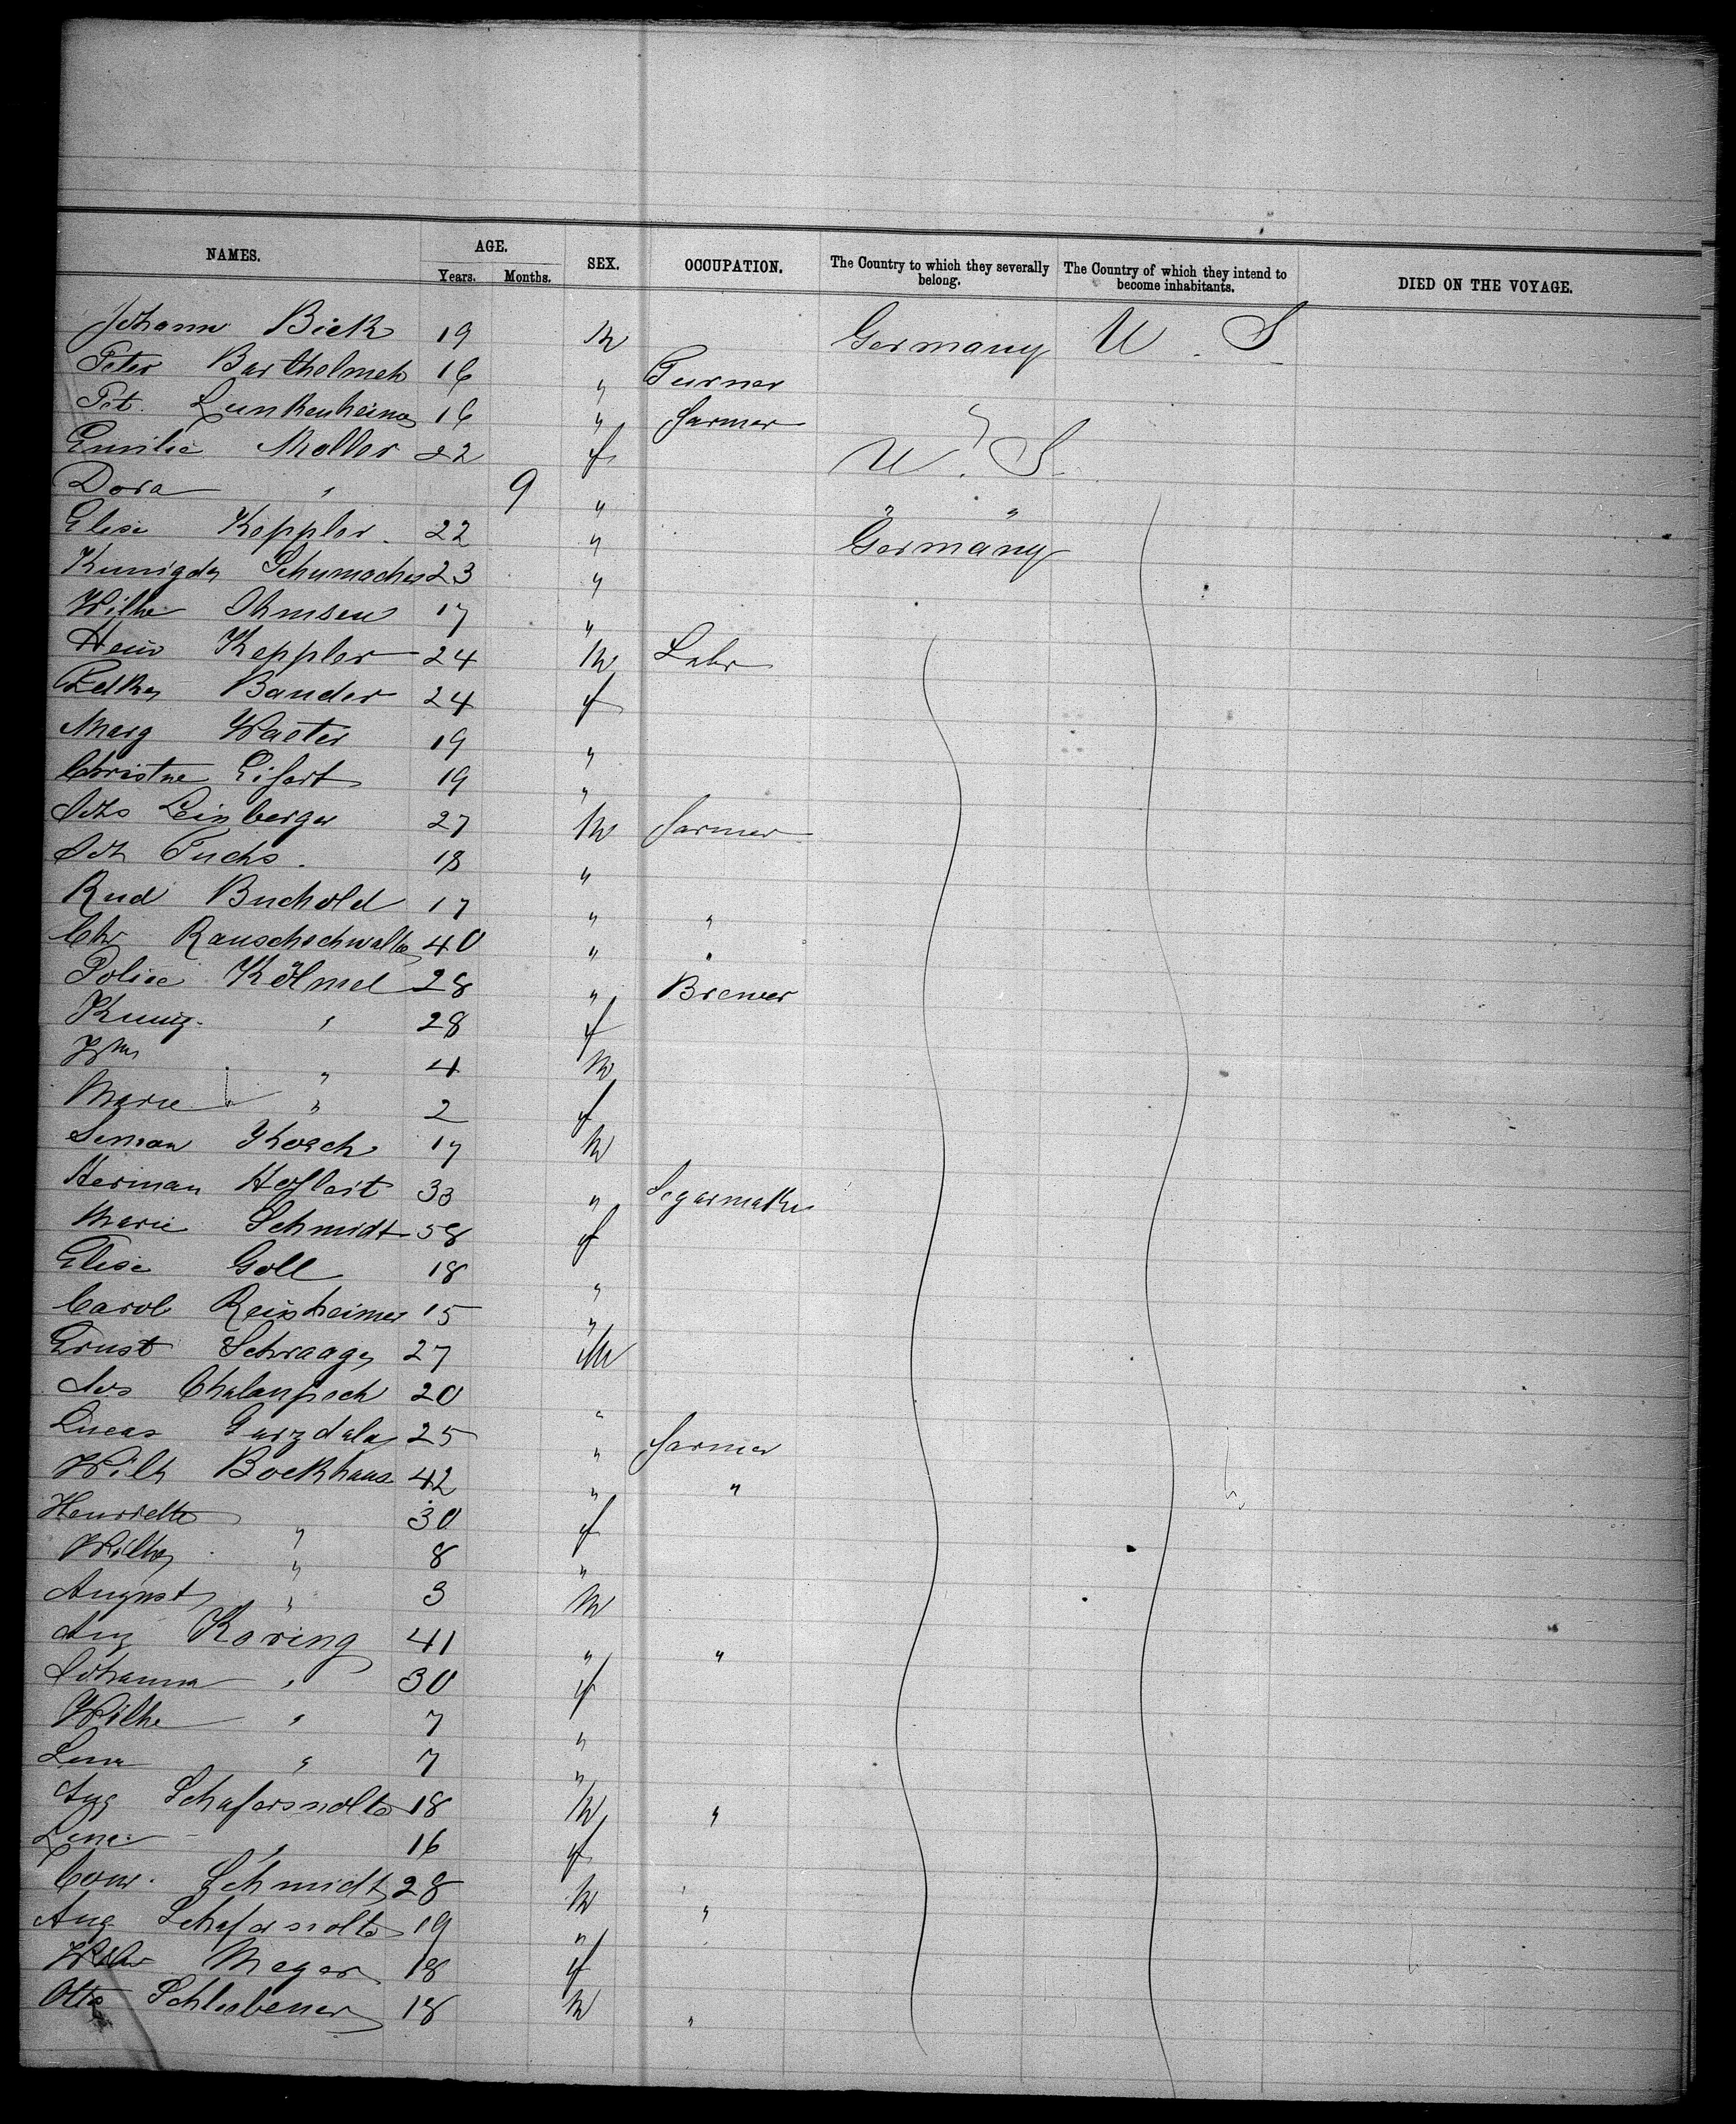 NAMES. AGE. Years. Months. SEX. OCCUPATION. The Country to which they severally belong. The Country of which they intend to become inhabitants. DIED ON THE VOYAGE.
Johann Bick 19 M Germany U. S
Peter Barthelmeh 16 " Turner
Pet. Lunkenheimer 16 " farmer "
Emilie Moller 22 f U. S.
Dora " 9 " " "
Elise Keppler. 22 " Germany
Kunigde Schumacher 23 "
Wilhe Ohmsen 17 "
Heinr Keppler 24 M Labr
Bander 24 f
Marg Waeter 19 "
Christne Eifert 19 "
Johs Leinberger 27 M farmer
Joh Fuchs. 18 "
Rud Buchold 17 " "
Chr Rauschschwalbe 40 " "
Kölmel 28 " Brewer
Kunig. " 28 f
Wm " 4 M
Marie " 2 f
Simon 17 M
Herman Hoflert 33 " Segarmaker
Marie Schmidt 58 f
Elise Goll 18 "
Carol Reinheimer 15 "
Ernst Schraage 27 M
Jos 20 "
Lucas Gurzdala 25 " farmer
Wilh Bockhaus 42 " "
Henriette " 30 f
Wilhe " 8 "
August " 3 M
Aug Koring 41 " "
Johanna " 30 f
Wilhe " 7 "
Lina " 7 "
Aug Schafersnolte 18 M "
Lina " 16 f
Conr. Schmidt 28 M "
Aug Schafersnolte 19 "
Wilhe Meyer 18 f
Otto Schliebener 18 M "